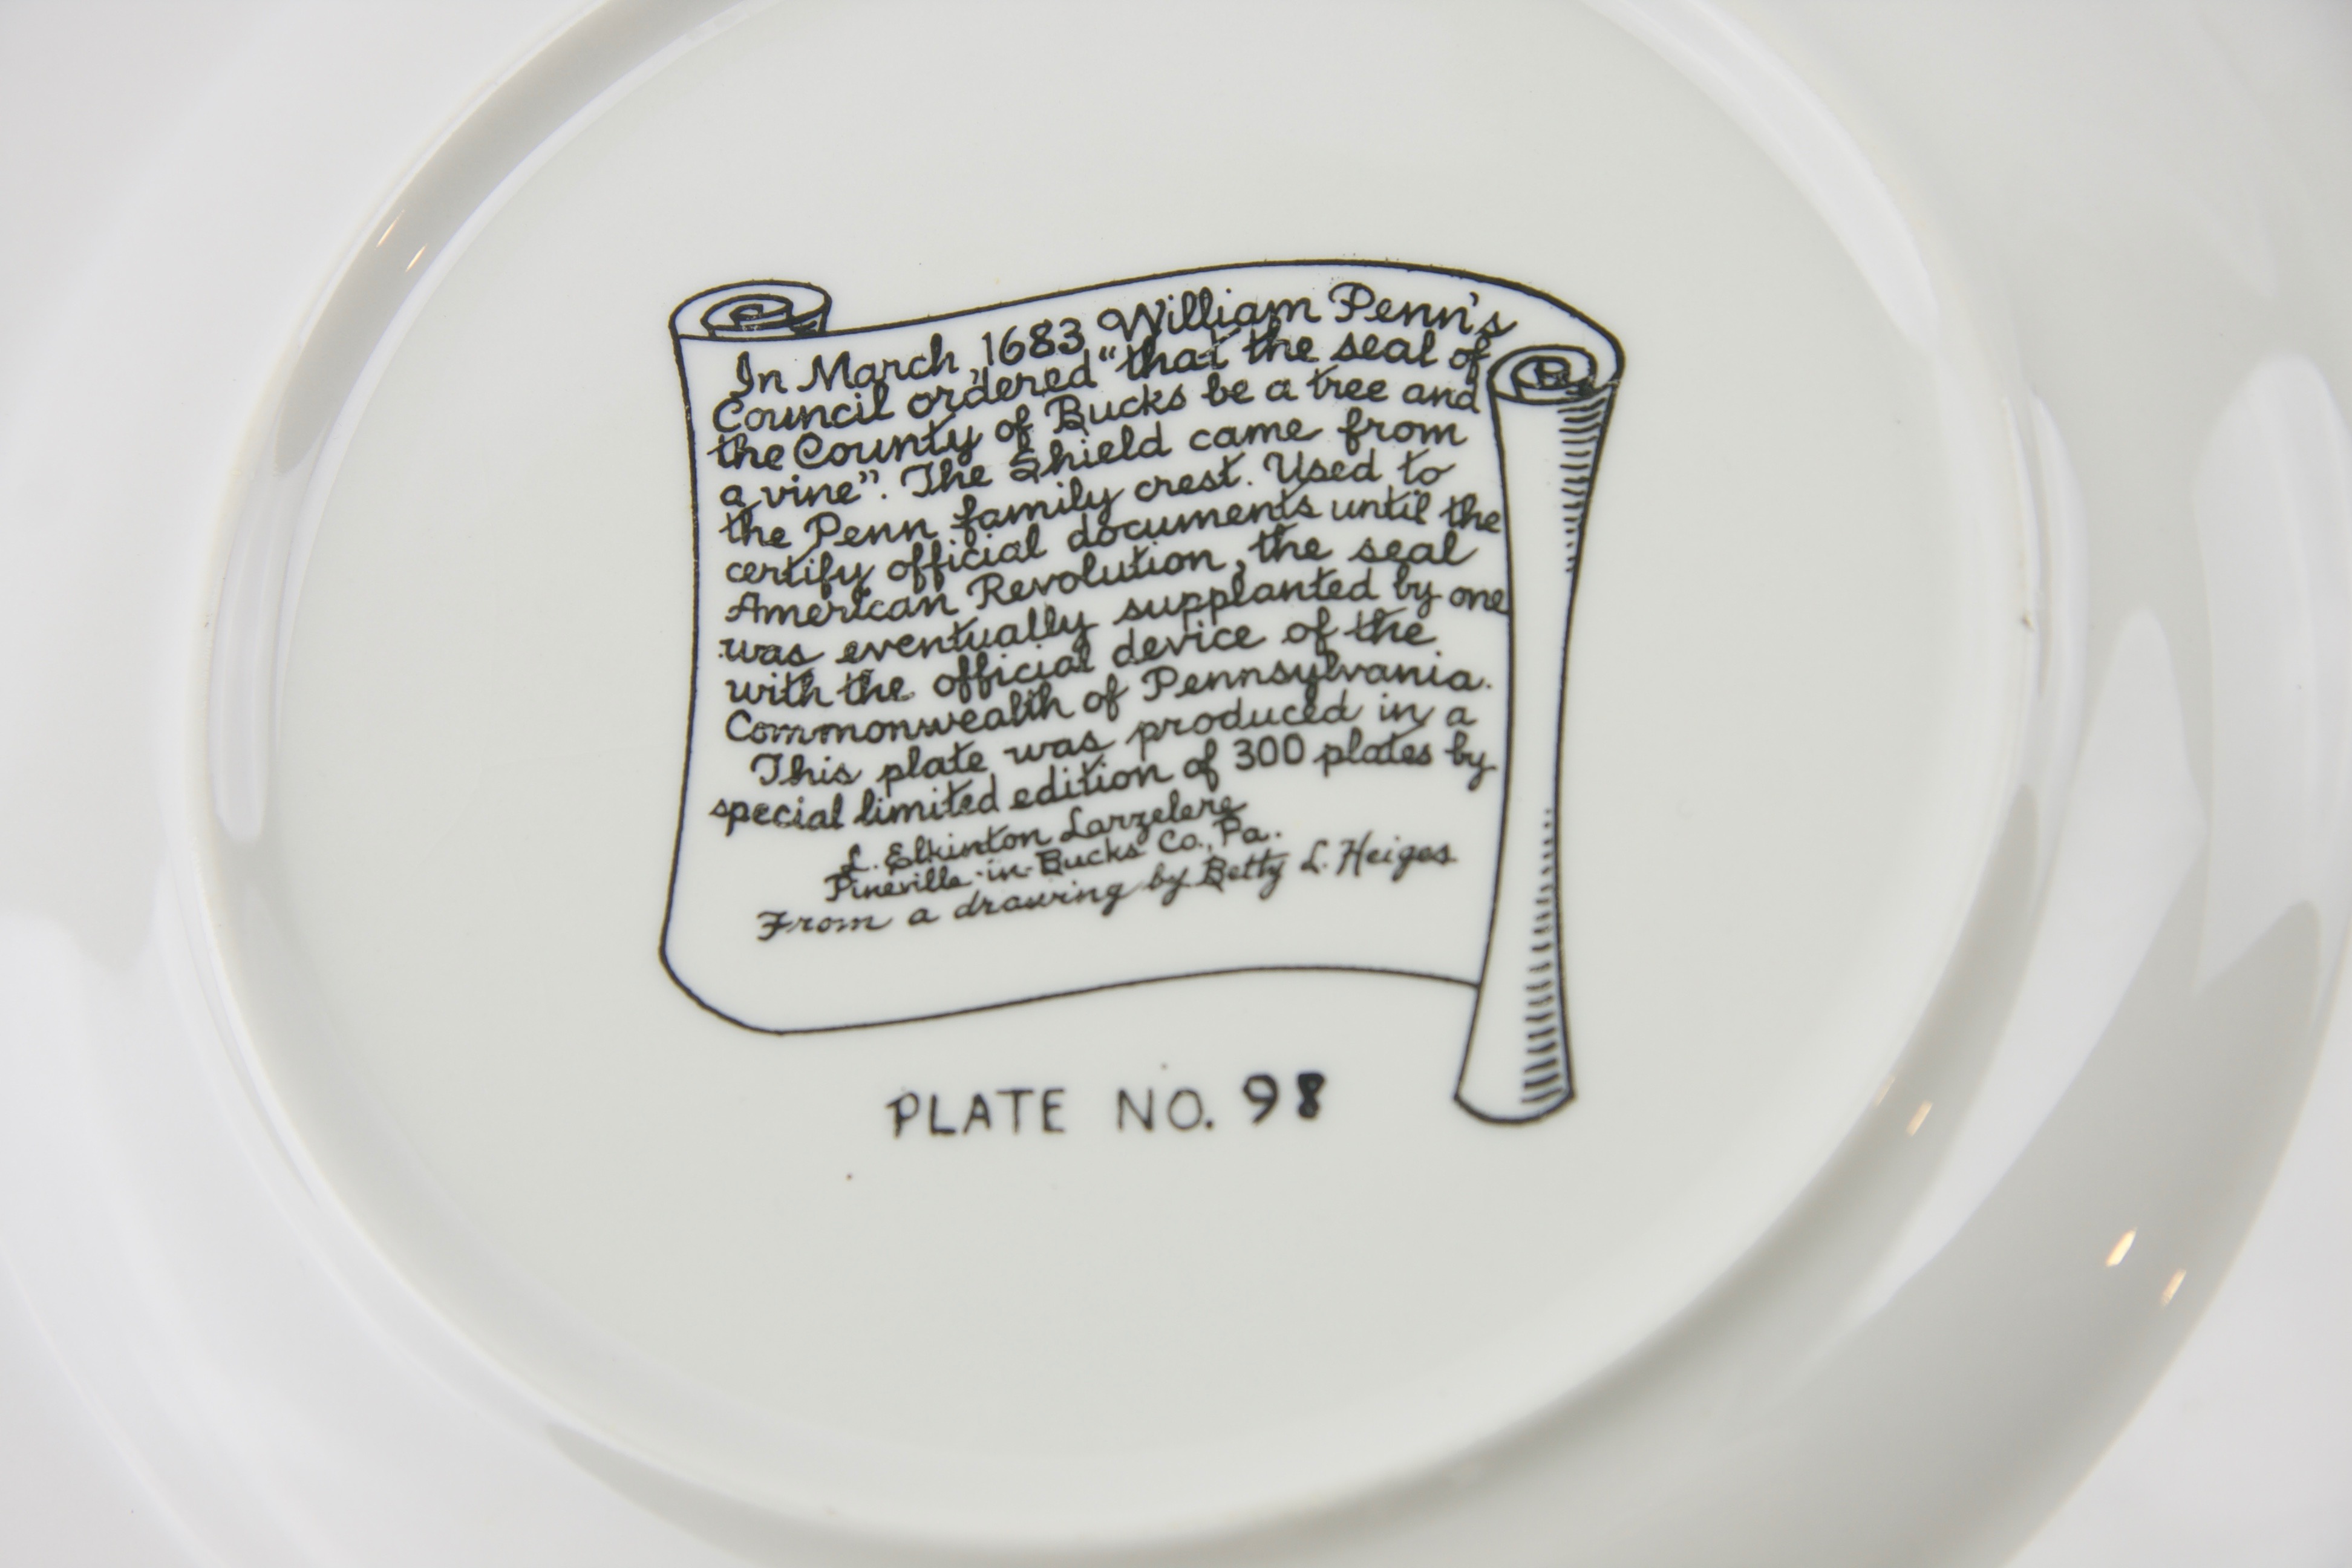 In March, 1683, William Penn's
Council ordered "that the seal of
the County of Bucks be a tree and
a vine". The Shield came from
the Penn family crest. Used to
certify official documents until the
American Revolution, the seal
was eventually supplanted by one
with the official device of the
Commonwealth of Pennsylvania.
This plate was produced in a
special limited edition of 300 plates by
L. Elkinton Larzelere
Pineville-in-Bucks Co., Pa..
From a drawing by Betty L. Heiges
PLATE NO. 98